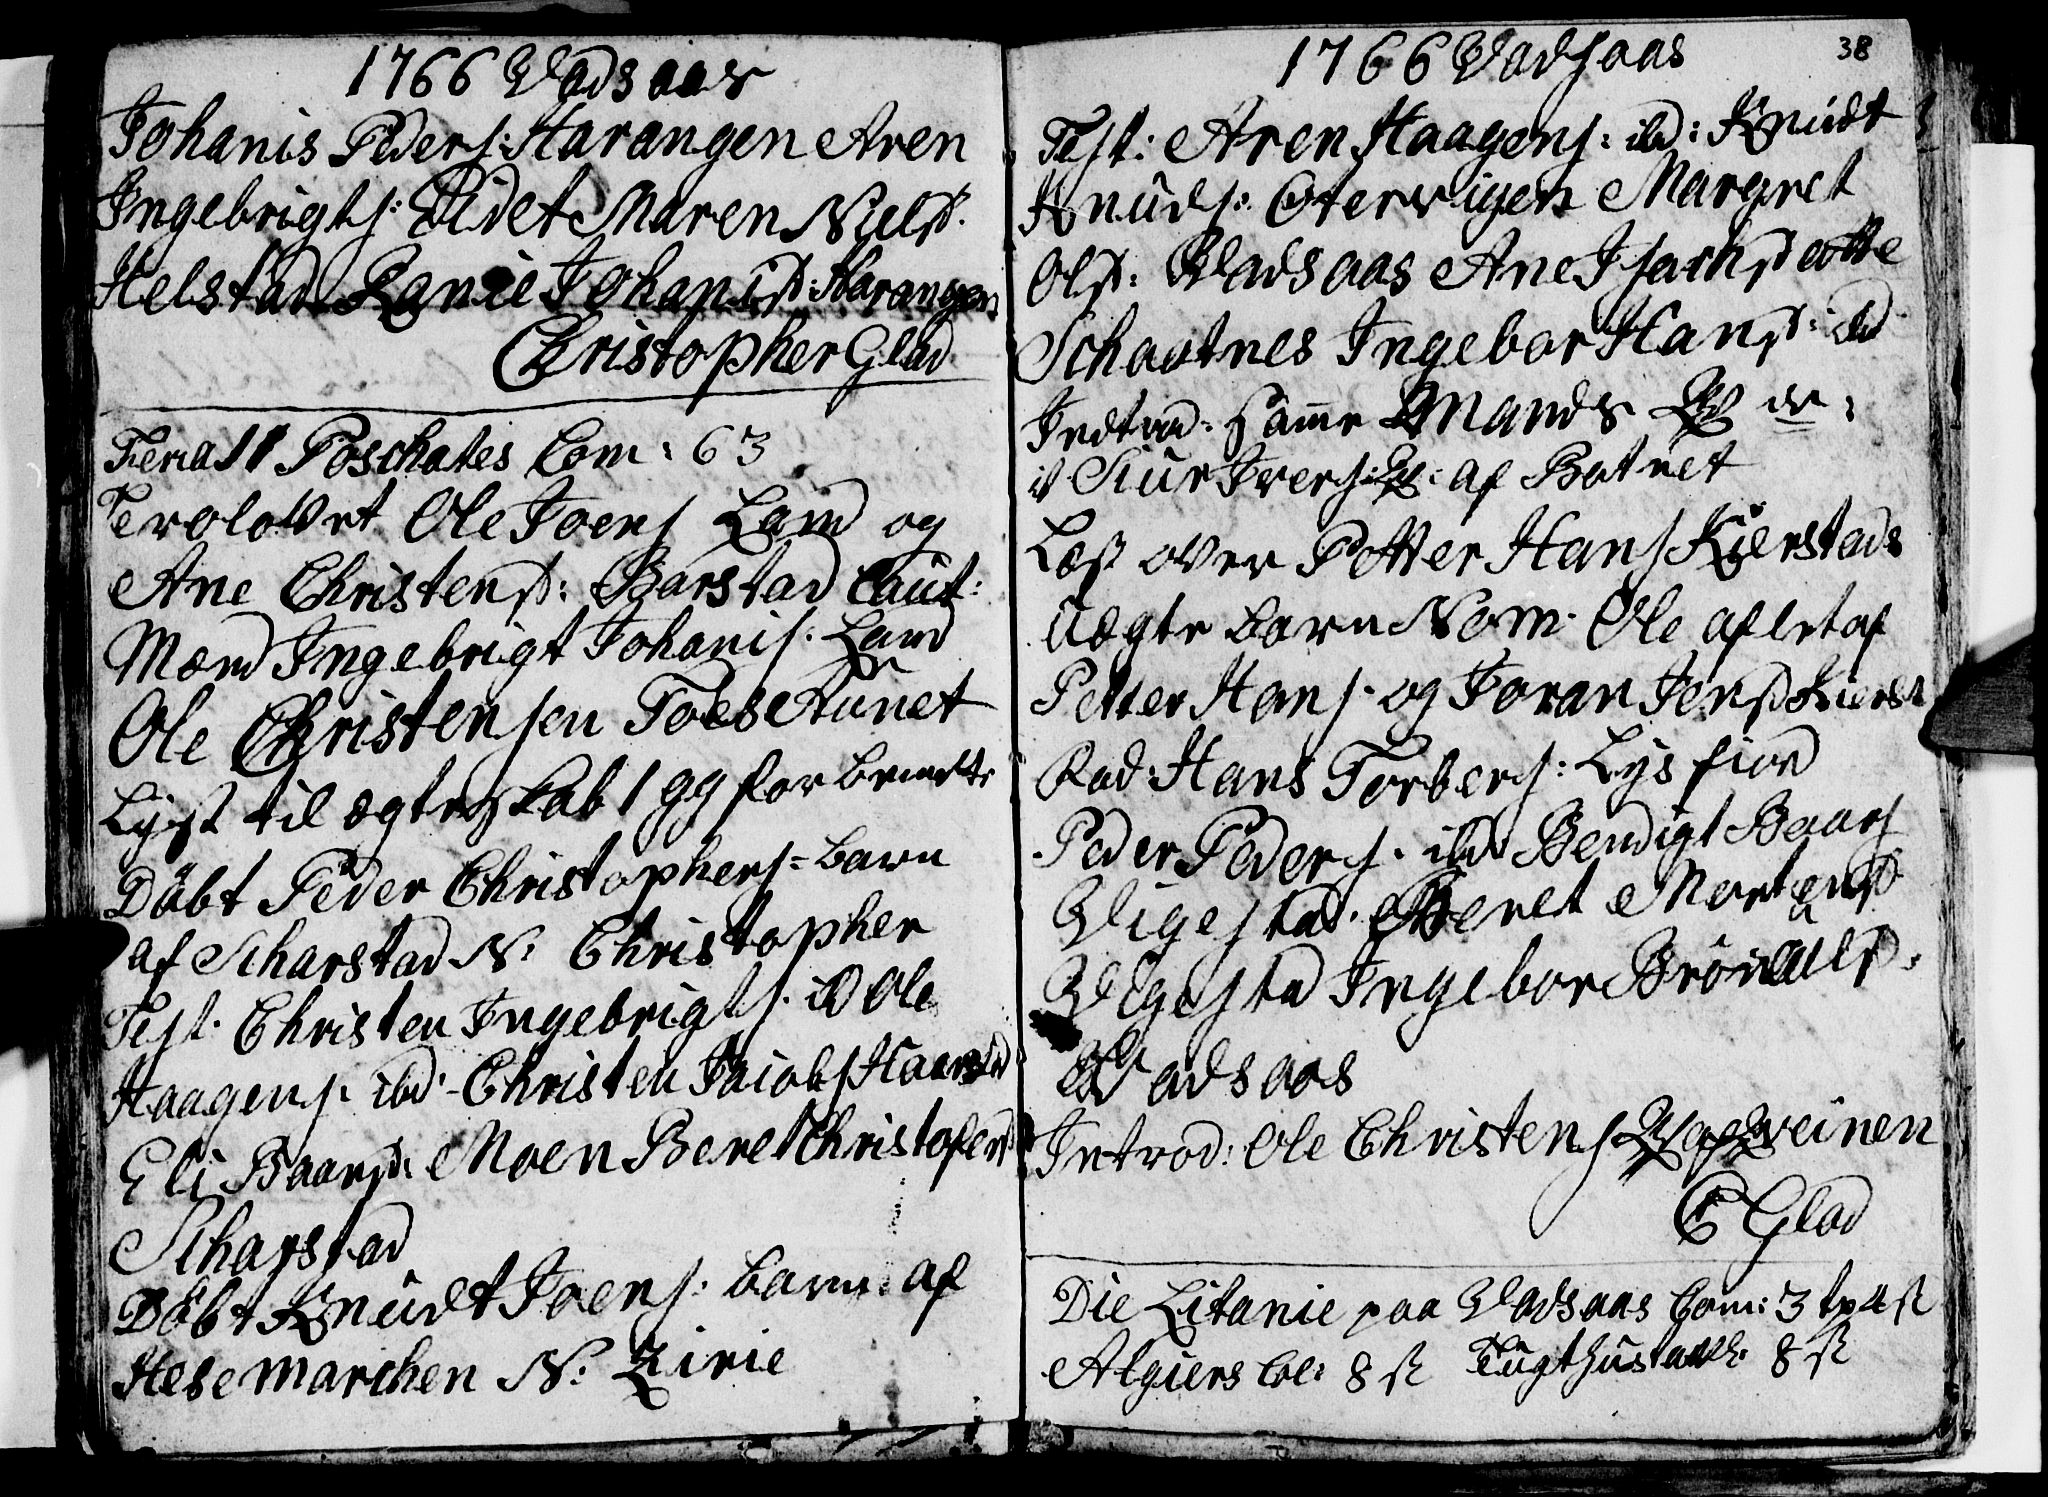 1766 Vadsaas
Johanis Peders: Harangen Aren
Ingebrigts: Eidet Maren Nielsd.
Helstad Ranie Johanisd: Harangen
Christopher Glad
Feria II Poschates Com: 63
Trolovet Ole Joens Land og
Ane Christensd: Barstad Caut:
Mænd Ingebrigt Johanis: Land
Ole Christensen Foesaunet
Lyst til ægteskab 1 gg for bemeldte
Döbt Peder Christophers: barn
af Scharstad N: Christopher
Test. Christen Ingebrigts. ibd Ole
Haagens. ibd. Christen Jacobs Haarstad
Eli Baarsd: Moen Beret Christofersd
Scharstad
Döbt Knudt Joens: barn af
Hesemarchen N: Zirie
1766 Vadsaas
38
Test: Aren Haagens: ibd: Knudt
Knuds: Otervigen Margret
Olsd: Vadsaas Ane Isachsdotte
Schaotnes Ingebor Hansd: ibd
Introd: samme Mands
it Siur Ivers: af Botnet
Læst over Petter Hans Kierstads
Uægte barn Nom. Ole aflet af
Petter Hans. og Joran Jensd Kierst
Rad: Hans Torbers: Lysfiord
Peder Peders. ibd Bendigt Baars
Vigestad. Beret Martensd
Vigesta Ingebor Brönilsd.
Vadsaas
Introd: Ole Christens af Kveinen
C Glad
Die Litanie paa Vadsaas Com: 3
Algiers Col: 8 st Tugthustavl: 8 st